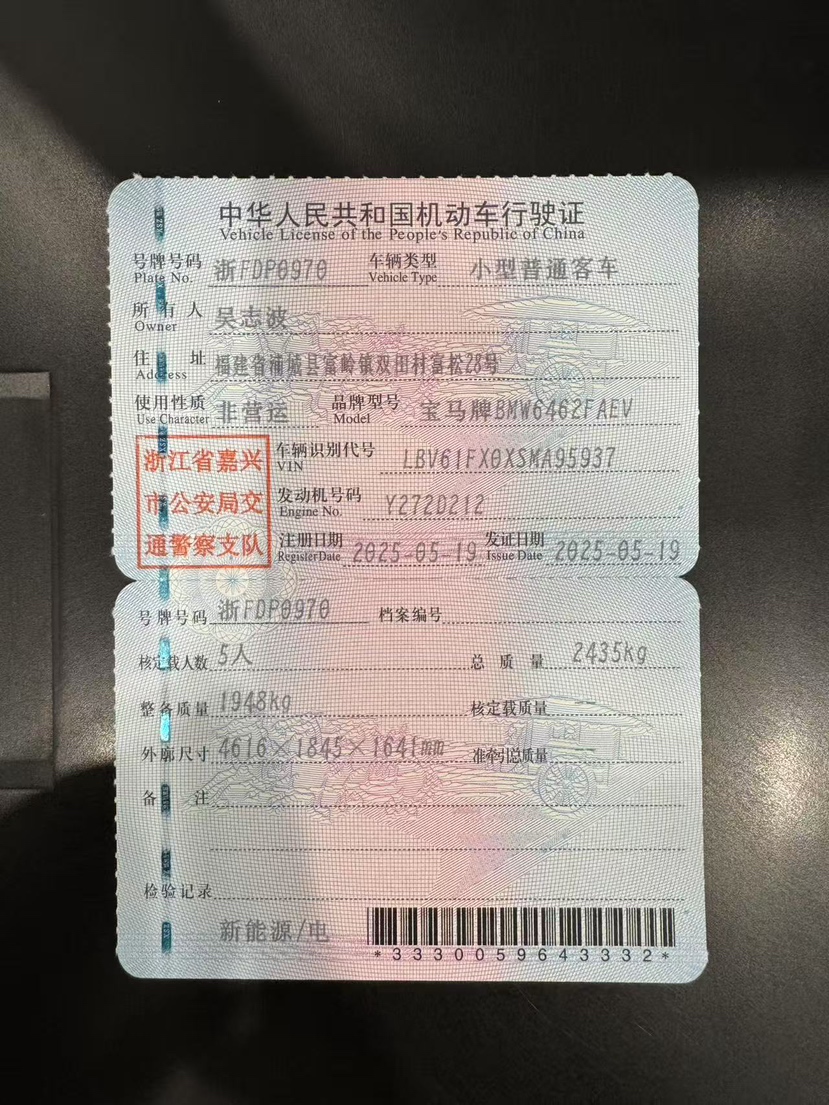 中华人民共和国机动车行驶证
Vehicle License of the People's Republic of China
号牌号码 浙FDP0970 车辆类型 小型普通客车
Plate No. Vehicle Type
所有人 吴志波
Owner
住址 福建省浦城县富岭镇双田村富松28号
Address
使用性质 非营运 品牌型号 宝马牌BMW6462FAEV
Use Character Model
浙江省嘉兴
市公安局交
通警察支队
车辆识别代号 LBV61FX0XSMA95937
VIN
发动机号码 Y272D212
Engine No.
注册日期 2025-05-19 发证日期 2025-05-19
Register Date Issue Date
号牌号码 浙FDP0970 档案编号
核定载人数 5人 总质量 2435kg
整备质量 1948kg 核定载质量 --
外廓尺寸 4616×1845×1641mm 准牵引总质量 --
备注
检验记录
新能源/电
*3330059643332*